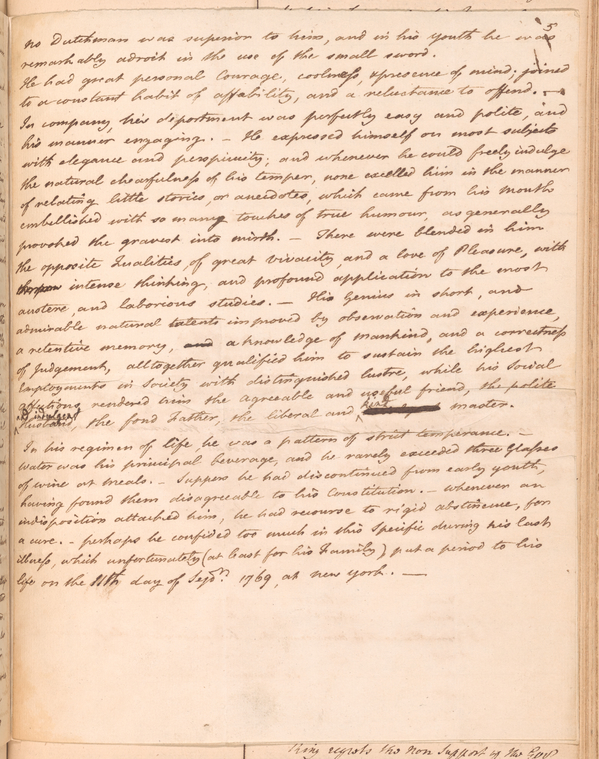 5
no Dutchman was superior to him, and in his youth he was
remarkably adroit in the use of the small sword.
He had great personal Courage, coolness, & presence of mind; joined
to a constant habit of affability, and a reluctance to offend. —
In company, his diportment was perfectly easy and polite, and
his manner engaging. — He expressed himself on most subjects
with elegance and perspicuity; and whenever he could freely indulge
the natural chearfulness of his temper, none excelled him in the manner
of relating little stories, or anecdotes, which came from his mouth
embellished with so many touches of true humour, as generally
provoked the gravest into mirth. — There were blended in him
the opposite Qualities of great vivacity and a love of Pleasure, with
intense thinking, and profound application to the most
austere and laborious studies. — His Genius in short, and
admirable natural talents improved by observation and experience,
a retentive memory, and a knowledge of mankind, and a correctness
of Judgement, alltogether qualified him to sustain the highest
Employments in Society with distinguished lustre, while his Social
affections rendered him the agreable and useful friend, the polite
& indulgent
Husband, the fond Father, the liberal and kind master.
In his regimen of life he was a pattern of strict temperance. —
Water was his principal beverage, and he rarely exceeded three Glasses
of wine at meals. — Suppers he had discontinued from early youth,
having found them disagreeable to his Constitution. — whenever an
indisposition attacked him, he had recourse to rigid abstinence, for
a cure. — perhaps he confided too much in this Specific during his last
illness, which unfortunately (at least for his Family) put a period to his
life on the 11th day of Sepr. 1769, at new york. —
King regrets the non Support of the Govr